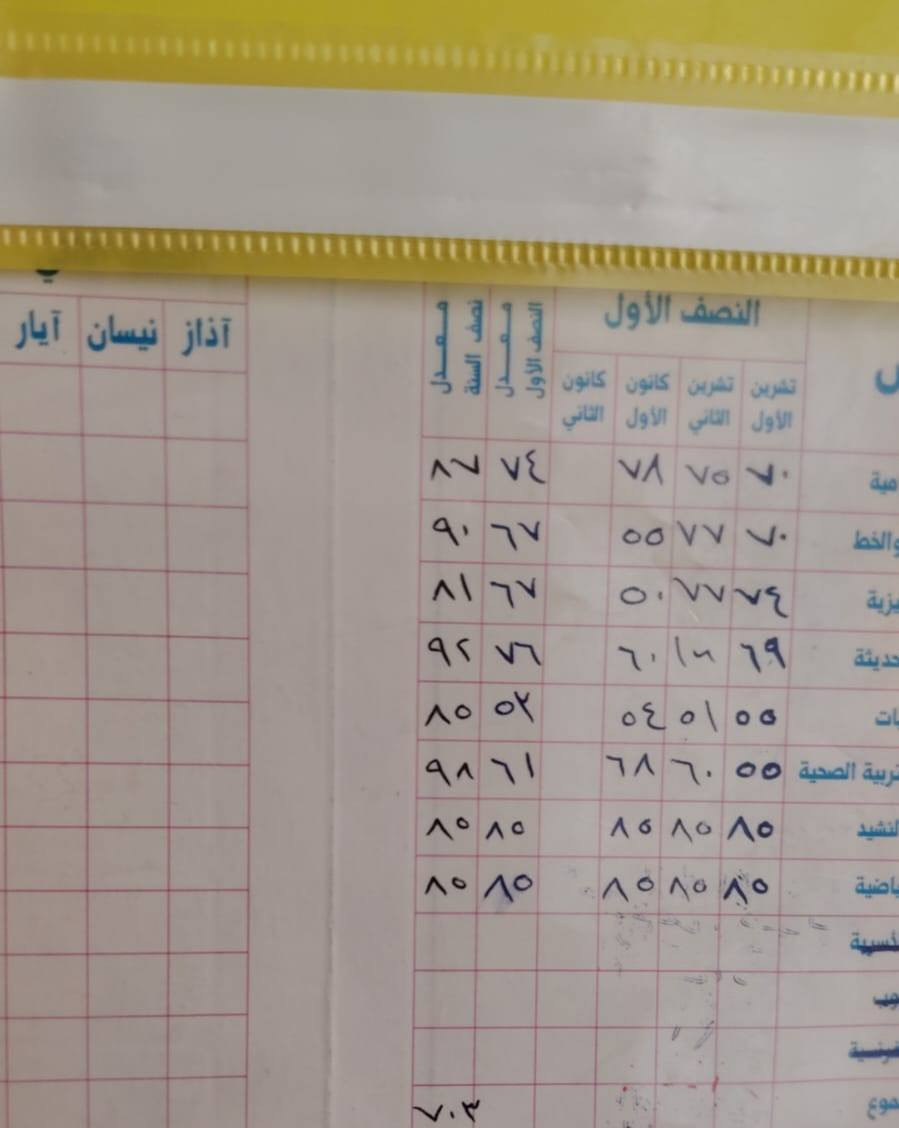 النصف الأول
معدل النصف الأول
معدل نصف السنة
آذار نيسان آيار
تشرين الأول تشرين الثاني كانون الأول كانون الثاني
٧٠ ٧٥ ٧٨ ٧٤ ٨٧
والخط ٧٠ ٧٧ ٥٥ ٦٧ ٩٠
٧٤ ٧٧ ٥٠ ٦٧ ٨١
٦٩ ٦٠ ٧٦ ٩٢
٥٥ ٥١ ٥٤ ٥٣ ٨٥
الصحية ٥٥ ٦٠ ٦٨ ٦١ ٩٨
٨٥ ٨٥ ٨٥ ٨٥ ٨٥
٨٥ ٨٥ ٨٥ ٨٥ ٨٥
٧٠٣